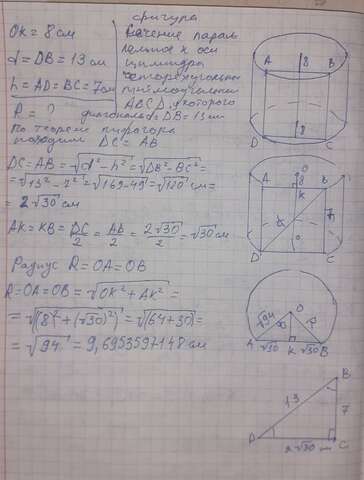 фигура
OK = 8 см
d = DB = 13 см
h = AD = BC = 7 см
R = ?
сечение парал
лельное к оси
цилиндра
четырёхугольник
прямоугольный
ABCD, у которого
диагональ d = DB = 13 см
По теореме пифагора
находим DC = AB
DC = AB = √d² - h² = √DB² - BC² =
= √13² - 7² = √169 - 49 = √120 см =
= 2√30 см
AK = KB = DC/2 = AB/2 = 2√30/2 = √30 см
Радиус R = OA = OB
R = OA = OB = √OK² + AK² =
= √(8)² + (√30)² = √(64 + 30) =
= √94 = 9,695359714 8 см
A 8 B
8
D C
O
A 8 B
K
d h
O
D C
O
√94 8 R
A √30 K √30 B
B
13 7
D 2√30 C